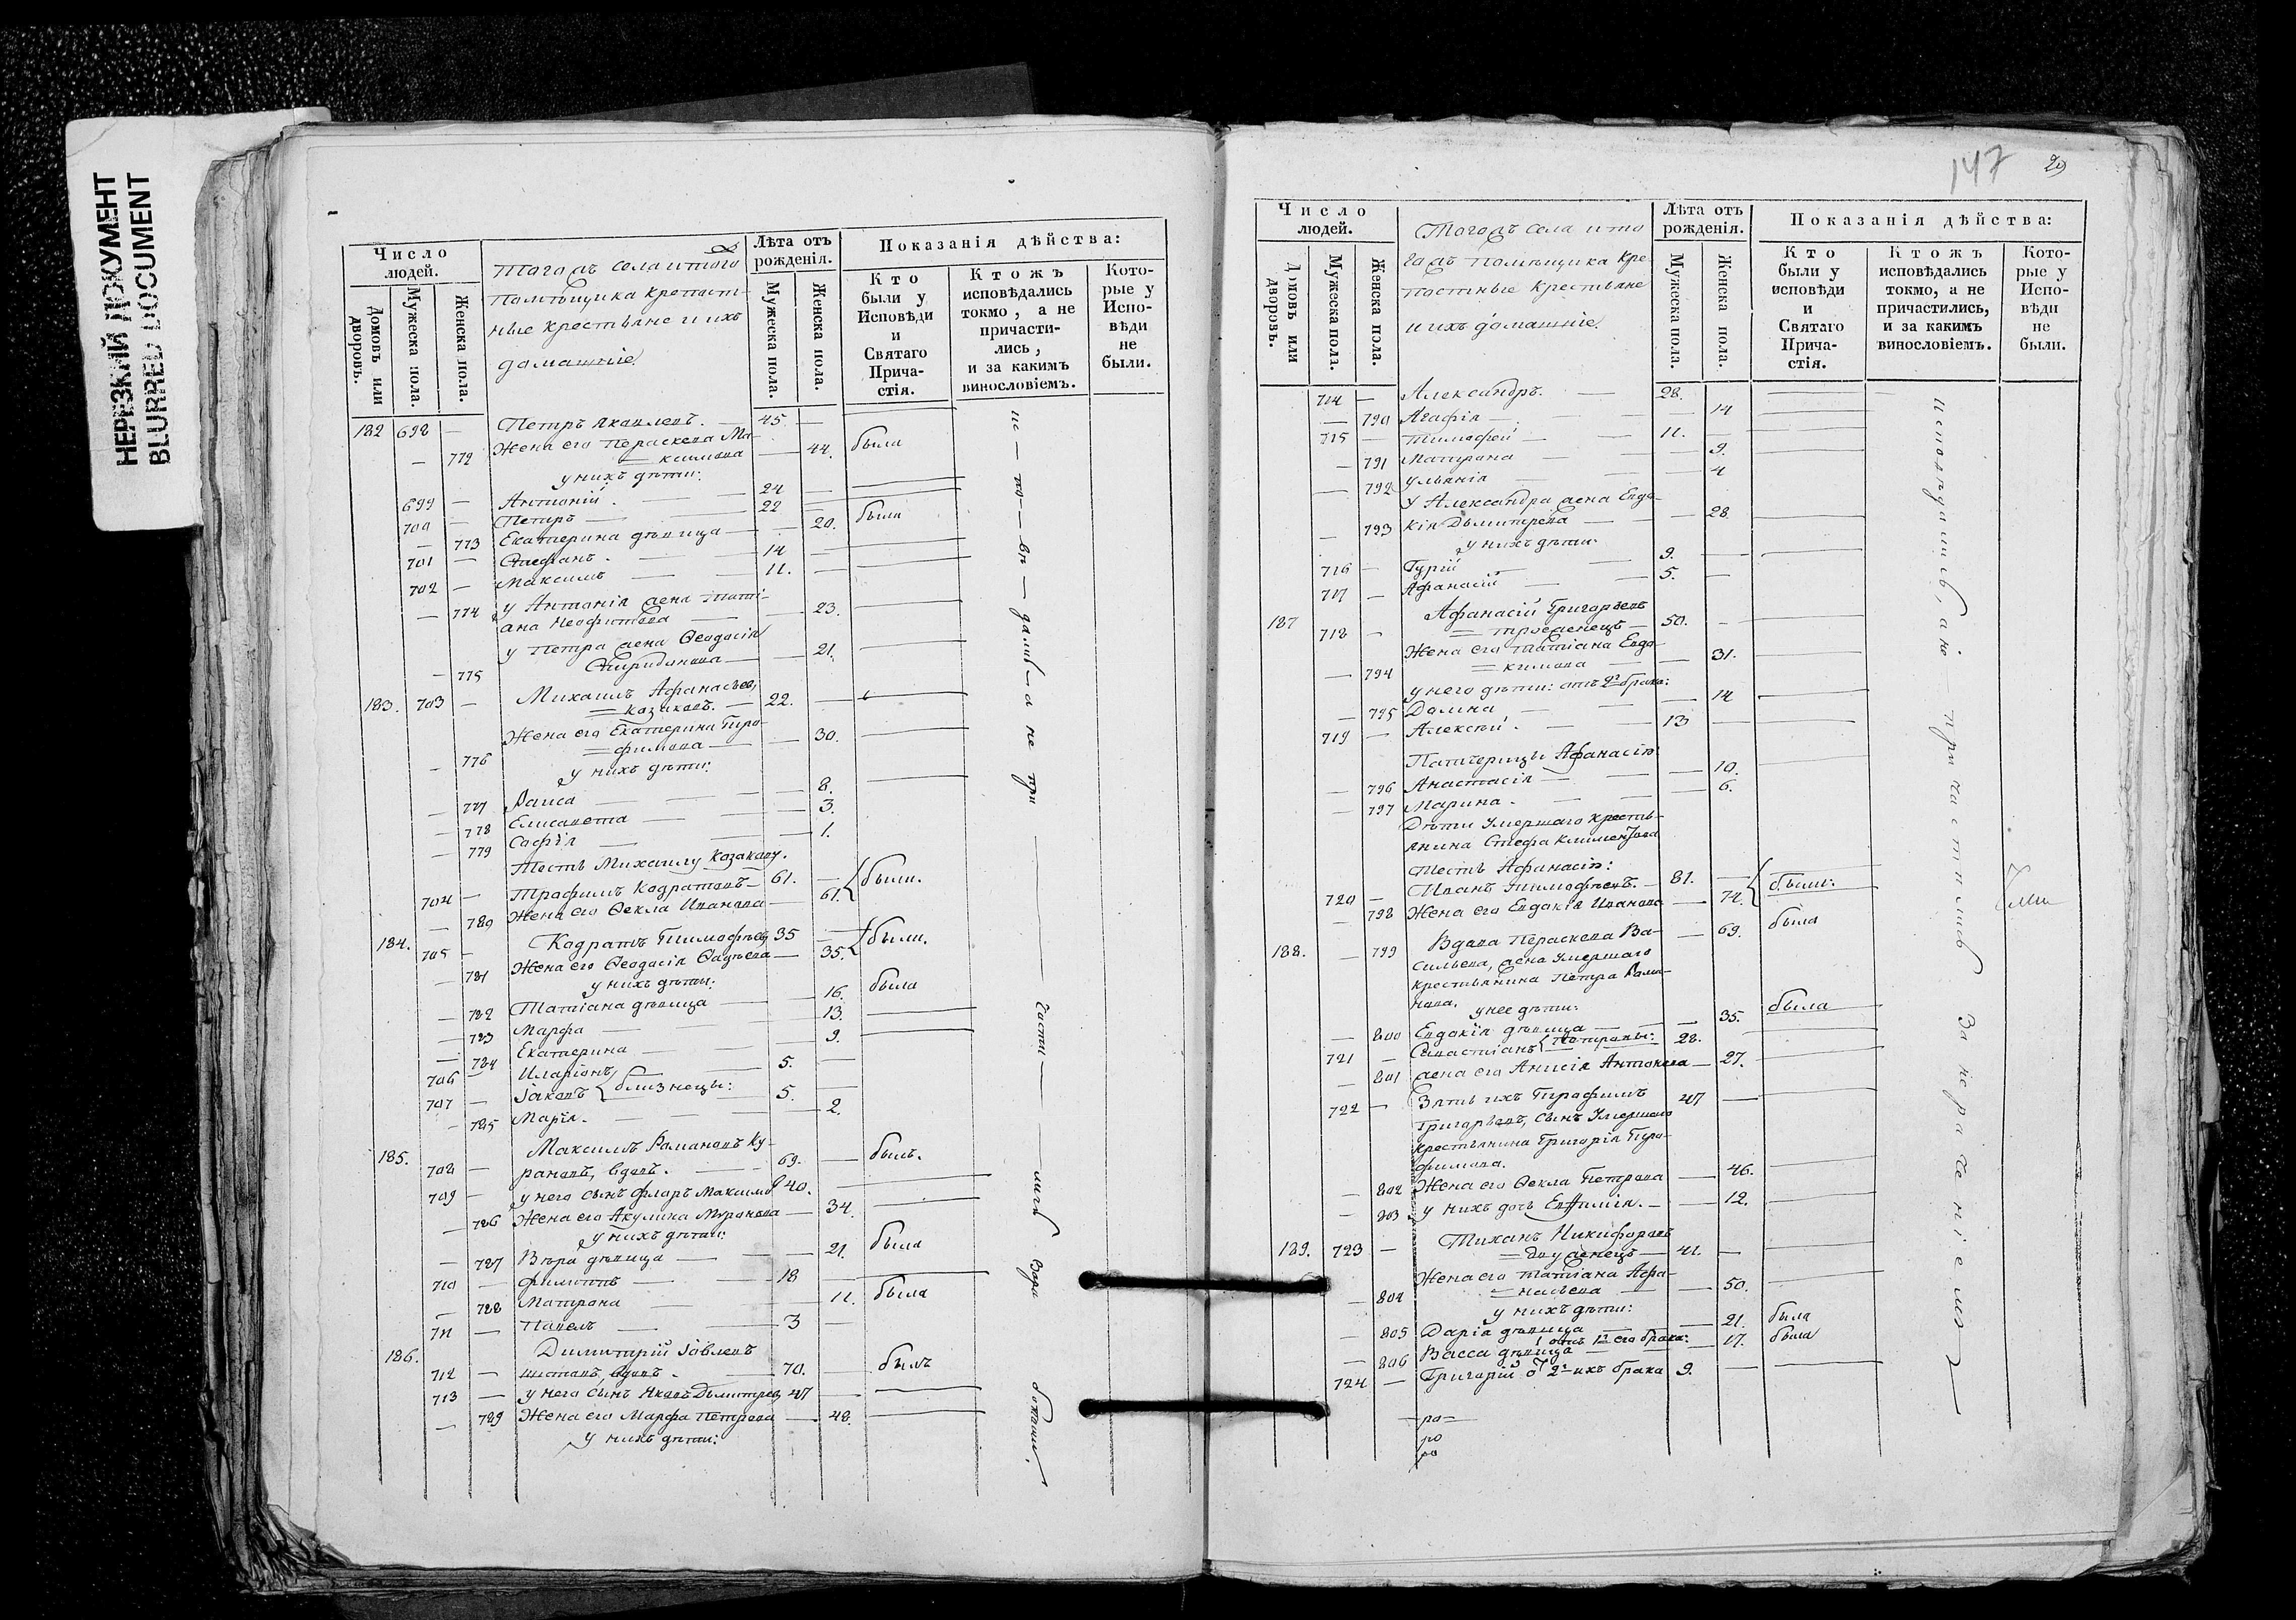 НЕРЕЗКИЙ ДОКУМЕНТ
BLURRED DOCUMENT
Число людей.
Домовъ или дворовъ.
Мужеска пола.
Женска пола.
Тогожъ села и того
помѣщика крепост-
ные крестьяне и ихъ
домашніе.
Лѣта отъ рожденія.
Мужеска пола.
Женска пола.
Показанія дѣйства:
Кто были у Исповѣди и Святаго Прича-стія.
Ктожъ исповѣдались токмо, а не причасти-лись, и за какимъ винословіемъ.
Кото-рые у Испо-вѣди не были.
182 698 — Петръ Яковлевъ. 45. —
Жена его Параскева Ма-
— 772 = ксимова — 44. была
у нихъ дѣти:
699 — Антоній. 24 —
700 — Петръ 22 —
— 773 Екатерина дѣвица — 20. была
701 — Стефанъ. 14 —
702 — Максимъ 11. —
— 774 у Антонія жена Тати-
ана Неофитова — 23.
у Петра жена Ѳеодосія
— 775 Спиридонова — 21.
183. 703 — Михаилъ Афанасьев,
= Казаковъ. 22. —
Жена его Екатерина Тро-
— 776 = фимова — 30.
у нихъ дѣти:
— 777 Раиса — 8.
— 778 Елисавета — 3.
— 779 Софія — 1.
Тесть Михаилу Казакову.
704 — Трофимъ Кодратовъ 61. — были.
— 780 Жена его Ѳекла Иванова — 61.
184. 705 — Кодратъ Тимофѣев, 35 — были.
— 781 Жена его Ѳеодосія Фадѣева — 35.
у нихъ дѣти:
— 782 Татіана дѣвица — 16. была
— 783 Марфа — 13.
— 784 Екатерина — 9.
706 — Иларіонъ 5. —
707 — Іаковъ близнецы: 5. —
— 785 Марія. — 2.
185. Максимъ Романовъ Ку-
708 — рановъ, вдовъ. 69. — былъ.
709 — у него сынъ Флоръ Максимо 40.
— 786 Жена его Акулина Миронова — 34.
у нихъ дѣти:
— 787 Вѣра дѣвица — 21. была
710 — Филиппъ 18
— 788 Матрона — 11. была
711 — Павелъ 3 —
186. Димитрій Іовлевъ
712 — вдовъ. 70. былъ
713 — у него сынъ Яковъ Дмитрев, 47 —
— 789 Жена его Марфа Петрова — 48.
у нихъ дѣти:
147
29
Число людей.
Домовъ или дворовъ.
Мужеска пола.
Женска пола.
Тогожъ села и то
гожъ помѣщика кре-
постные крестьяне
и ихъ домашніе.
Лѣта отъ рожденія.
Мужеска пола.
Женска пола.
Показанія дѣйства:
Кто были у исповѣди и Святаго Прича-стія.
Ктожъ исповѣдались токмо, а не причастились, и за какимъ винословіемъ.
Кото-рые у Испо-вѣди не были.
714 — Александръ. 28.
— 790 Агафія — 14
715 — Тимофей 11. —
— 791 Матрона — 9.
— 792 Ульянія — 4
у Александра жена Евдо-
— 793 кія Дьмитрева — 28
у нихъ дѣти:
716 — Гурій 9. —
717 — Афанасій 5. —
187 Афанасій Григорьевъ
718 — 50. —
Жена его Татіана Евдо-
— 794 = кимова — 31.
у него дѣти: отъ 2го брака:
— 795 Домна — 14
719 — Алексѣй. 13 —
Патчерицы Афанасію
— 796 Анастасія — 10.
— 797 Марина. — 6.
Дѣти умершаго кресть-
янина
Тесть Афанасію:
720 — Иванъ Тимофѣевъ. 81. — были:
— 798 Жена его Евдокія Иванова — 74.
188. — 799 Вдова Параскева Ва- — 69. была
сильева, жена умершаго
крестьянина Петра Рома-
нова.
у нее дѣти:
— 800 Евдокія дѣвица — 35. была
721 — Севастіанъ Петровы: 28.
— 801 жена его Анисія Антонова — 27.
722 — Зять ихъ Трофимъ 47 —
Григорьевъ, сынъ умершаго
крестьянина Григорія Тро-
фимова.
— 802 Жена его Ѳекла Петрова — 46.
— 803 у нихъ дочь Евфимія. — 12.
189. 723 — Тиханъ Никифоровъ
41. —
Жена его Татіана Афа-
— 804 = насьева — 50.
у нихъ дѣти:
— 805 Дарія дѣвица — 21. была
— 806 Васса дѣвица отъ 1го его брака: — 17. была
724 — Григорій о 2го ихъ брака 9. —